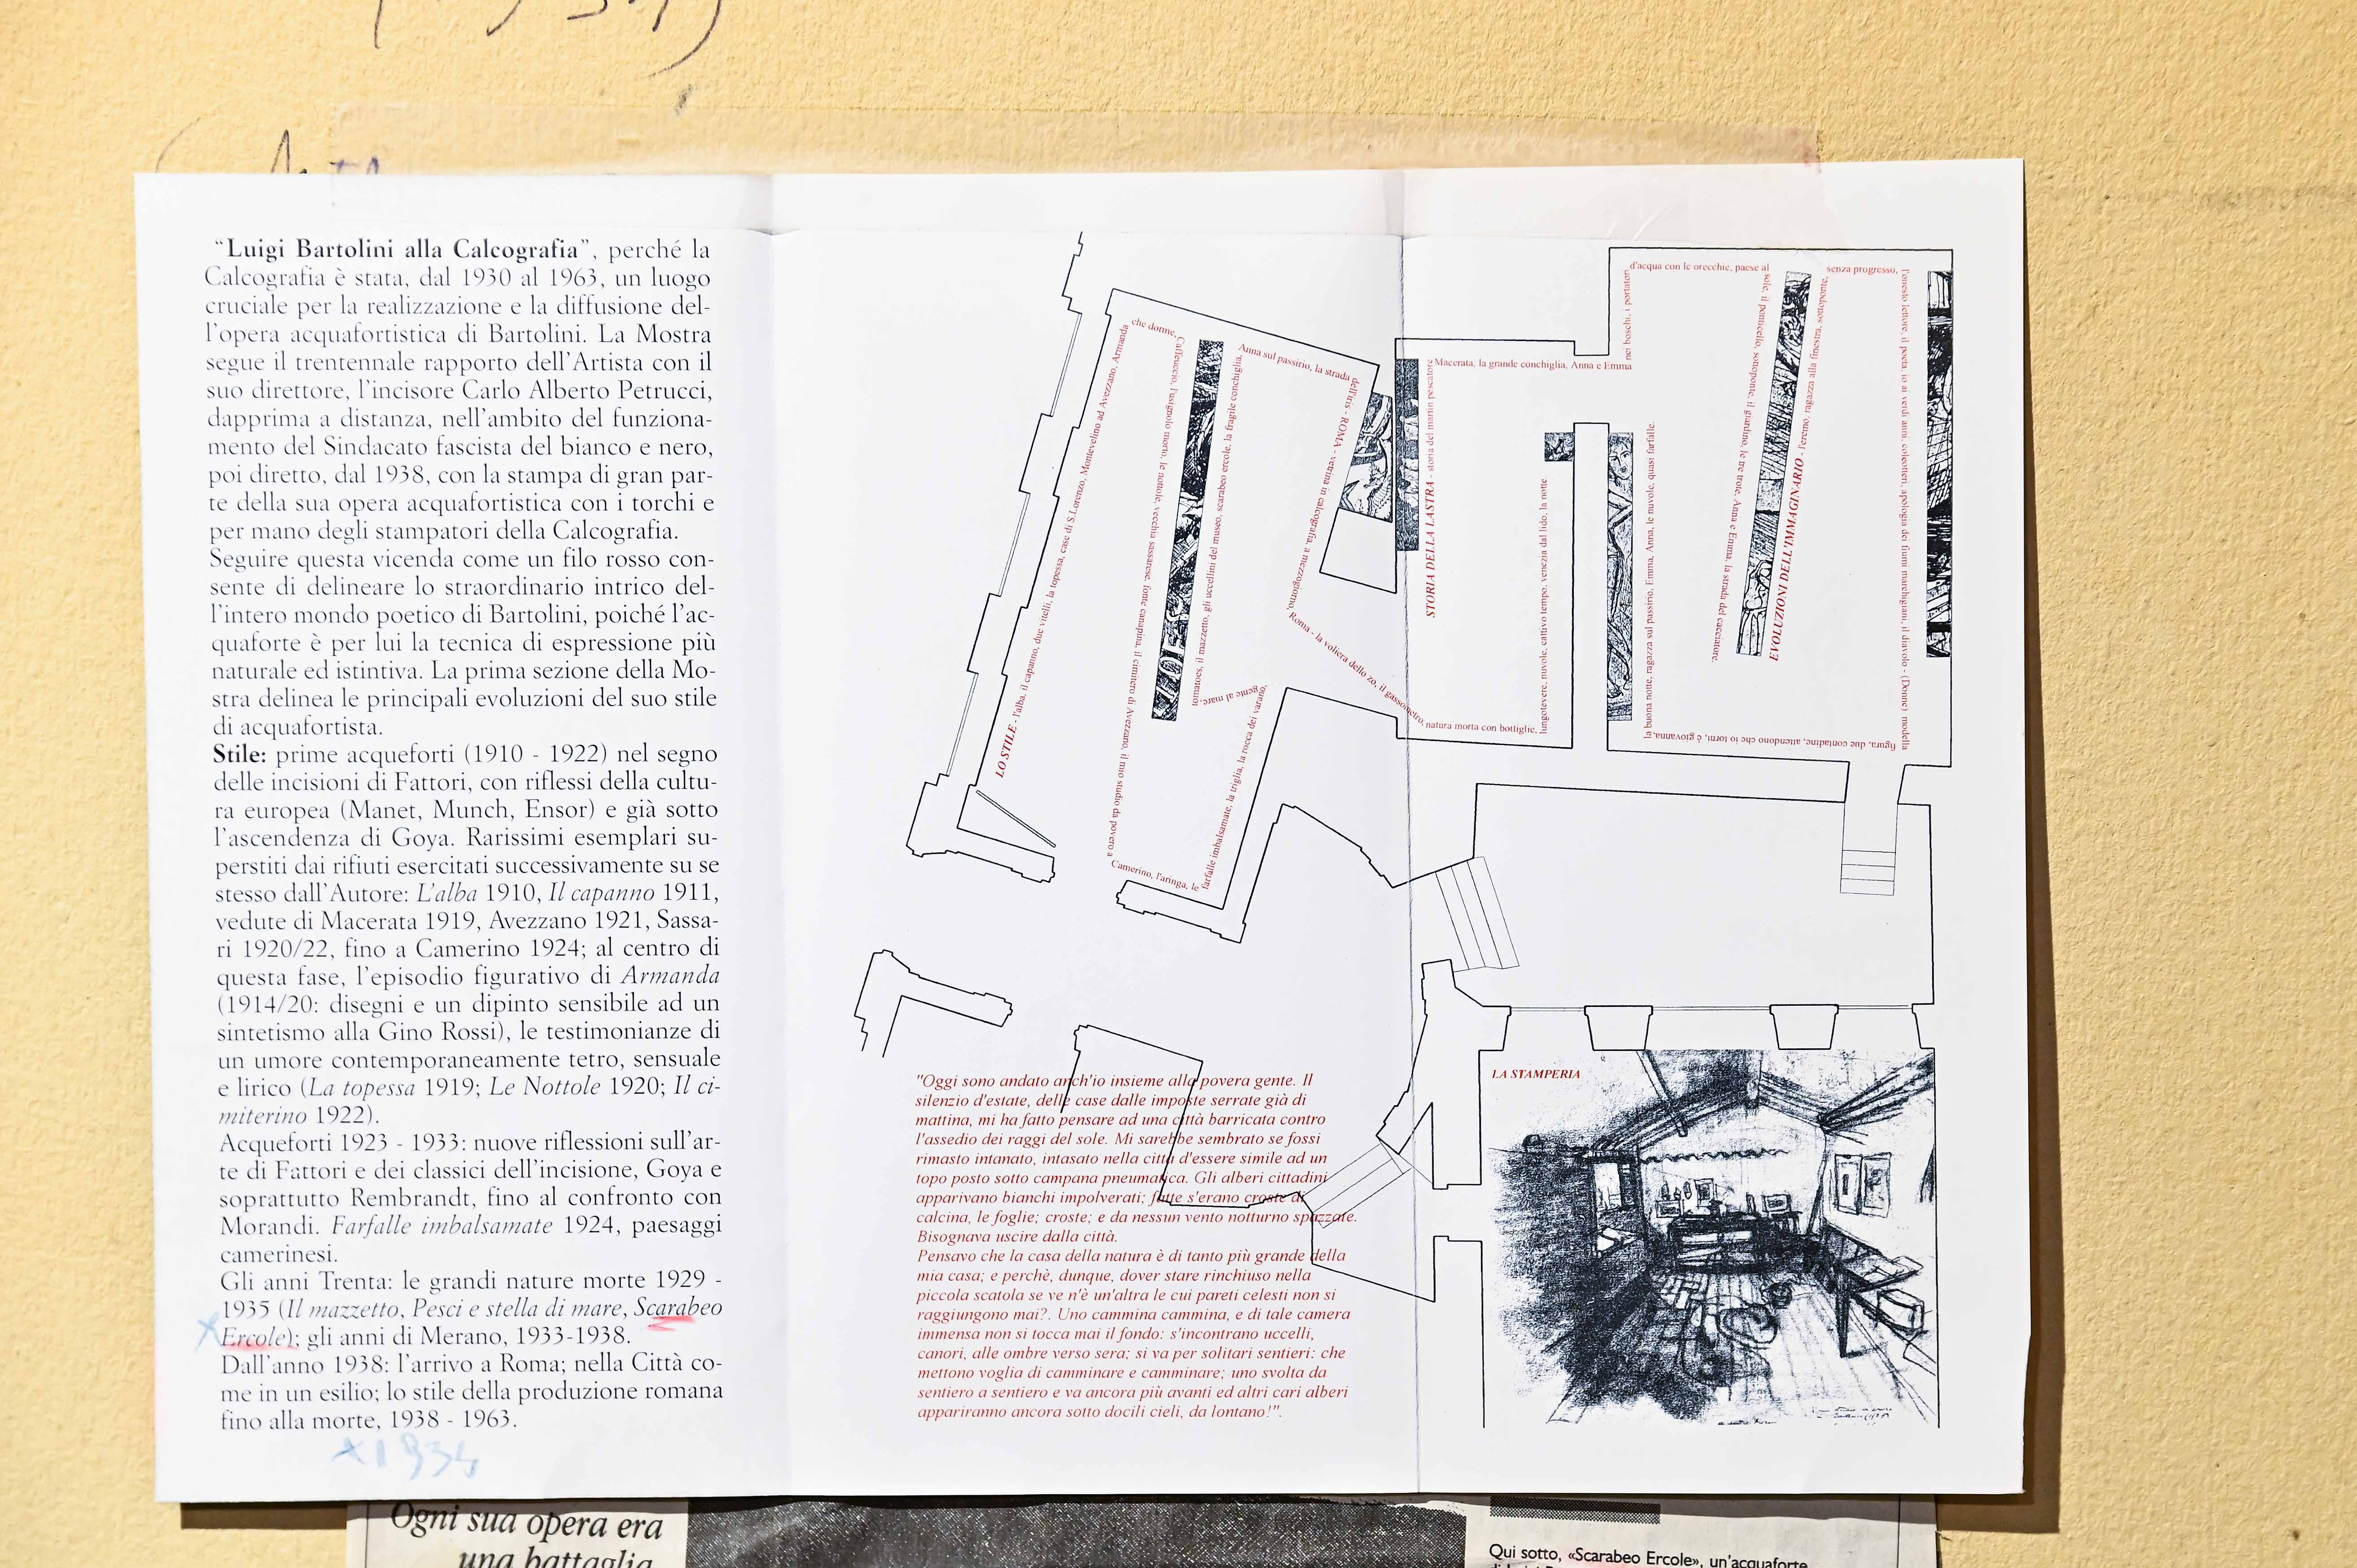 “Luigi Bartolini alla Calcografia”, perché la
Calcografia è stata, dal 1930 al 1963, un luogo
cruciale per la realizzazione e la diffusione del-
l’opera acquafortistica di Bartolini. La Mostra
segue il trentennale rapporto dell’Artista con il
suo direttore, l’incisore Carlo Alberto Petrucci,
dapprima a distanza, nell’ambito del funziona-
mento del Sindacato fascista del bianco e nero,
poi diretto, dal 1938, con la stampa di gran par-
te della sua opera acquafortistica con i torchi e
per mano degli stampatori della Calcografia.
Seguire questa vicenda come un filo rosso con-
sente di delineare lo straordinario intrico del-
l’intero mondo poetico di Bartolini, poiché l’ac-
quaforte è per lui la tecnica di espressione più
naturale ed istintiva. La prima sezione della Mo-
stra delinea le principali evoluzioni del suo stile
di acquafortista.
Stile: prime acqueforti (1910 - 1922) nel segno
delle incisioni di Fattori, con riflessi della cultu-
ra europea (Manet, Munch, Ensor) e già sotto
l’ascendenza di Goya. Rarissimi esemplari su-
perstiti dai rifiuti esercitati successivamente su se
stesso dall’Autore: L’alba 1910, Il capanno 1911,
vedute di Macerata 1919, Avezzano 1921, Sassa-
ri 1920/22, fino a Camerino 1924; al centro di
questa fase, l’episodio figurativo di Armanda
(1914/20: disegni e un dipinto sensibile ad un
sintetismo alla Gino Rossi), le testimonianze di
un umore contemporaneamente tetro, sensuale
e lirico (La topessa 1919; Le Nottole 1920; Il ci-
miterino 1922).
Acqueforti 1923 - 1933: nuove riflessioni sull’ar-
te di Fattori e dei classici dell’incisione, Goya e
soprattutto Rembrandt, fino al confronto con
Morandi. Farfalle imbalsamate 1924, paesaggi
camerinesi.
Gli anni Trenta: le grandi nature morte 1929 -
1935 (Il mazzetto, Pesci e stella di mare, Scarabeo
Ercole); gli anni di Merano, 1933-1938.
Dall’anno 1938: l’arrivo a Roma; nella Città co-
me in un esilio; lo stile della produzione romana
fino alla morte, 1938 - 1963.
x 1934
LO STILE - l'alba, il capanno, due vitelli, la topessa, case di S.Lorenzo, Montevelino ad Avezzano, Armanda
che dorme,
Caffeuccio, l'usignolo morto, le nottole, vecchia sassarese, fonte canapina, il cimitero di Avezzano, il mio studio da povero a
Camerino, l'aringa, le
farfalle imbalsamate, la triglia, la rocca dei varano,
gente al mare,
tomatoes, il mazzetto, gli uccellini del museo, scarabeo ercole, la fragile conchiglia,
Anna sul passirio, la strada
dell'iris - ROMA - vetrina in calcografia, a mezzogiorno,
Roma - la voliera dello zo, il gassometro,
natura morta con bottiglie,
lungotevere, nuvole, cattivo tempo, venezia dal lido, la notte
STORIA DELLA LASTRA - storia del martin pescatore
Macerata, la grande conchiglia, Anna e Emma
nei boschi, i portatori
d'acqua con le orecchie, paese al
sole, il ponticello, sottoponte, il giardino, le tre trote, Anna e Emma, la strada del cacciatore,
EVOLUZIONI DELL'IMMAGINARIO - l'eremo, ragazza alla finestra, sottoponte,
senza progresso,
l'onesto lettore, il poeta, io ai verdi anni, coleotteri, apologia dei fiumi marchigiani, il diavolo - (Donne) modella
figura, due contadine, attendono che io torni, è giovanna,
la buona notte, ragazza sul passirio, Emma, Anna, le nuvole, quasi farfalle,
"Oggi sono andato anch'io insieme alla povera gente. Il
silenzio d'estate, delle case dalle imposte serrate già di
mattina, mi ha fatto pensare ad una città barricata contro
l'assedio dei raggi del sole. Mi sarebbe sembrato se fossi
rimasto intanato, intasato nella città d'essere simile ad un
topo posto sotto campana pneumatica. Gli alberi cittadini
apparivano bianchi impolverati; fatte s'erano croste di
calcina, le foglie; croste; e da nessun vento notturno spazzate.
Bisognava uscire dalla città.
Pensavo che la casa della natura è di tanto più grande della
mia casa; e perchè, dunque, dover stare rinchiuso nella
piccola scatola se ve n'è un'altra le cui pareti celesti non si
raggiungono mai?. Uno cammina cammina, e di tale camera
immensa non si tocca mai il fondo: s'incontrano uccelli,
canori, alle ombre verso sera; si va per solitari sentieri: che
mettono voglia di camminare e camminare; uno svolta da
sentiero a sentiero e va ancora più avanti ed altri cari alberi
appariranno ancora sotto docili cieli, da lontano!".
LA STAMPERIA
Ogni sua opera era
una battaglia
Qui sotto, «Scarabeo Ercole», un'acquaforte